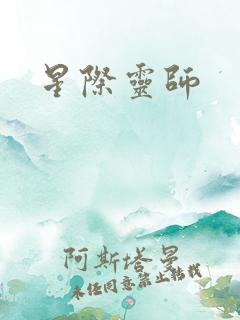 星際靈師
阿斯塔曼
未經同意禁止轉載